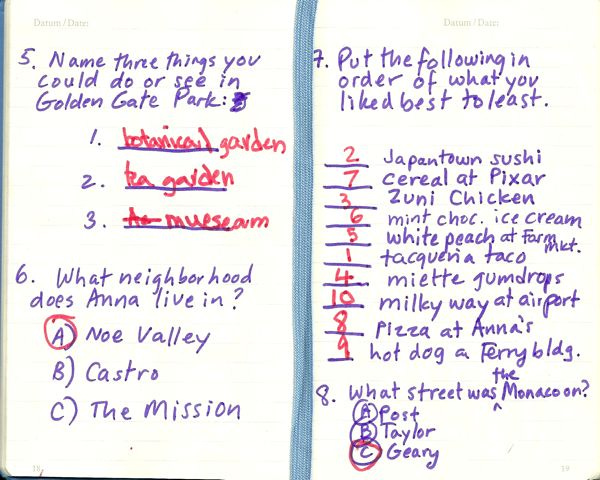 Datum / Date:
5. Name three things you
could do or see in
Golden Gate Park:
1. botanical garden
2. tea garden
3. muesearm
6. What neighborhood
does Anna live in?
A) Noe Valley
B) Castro
C) The Mission
18
Datum / Date:
7. Put the following in
order of what you
liked best to least.
2 Japantown sushi
7 cereal at Pixar
3 Zuni Chicken
6 mint choc. ice cream
5 white peach at Farm mkt.
1 taqueria taco
4 miette gumdrops
10 milky way at airport
8 Pizza at Anna's
9 hot dog a Ferry bldg.
8. What street was the Monaco on?
A) Post
B) Taylor
C) Geary
19